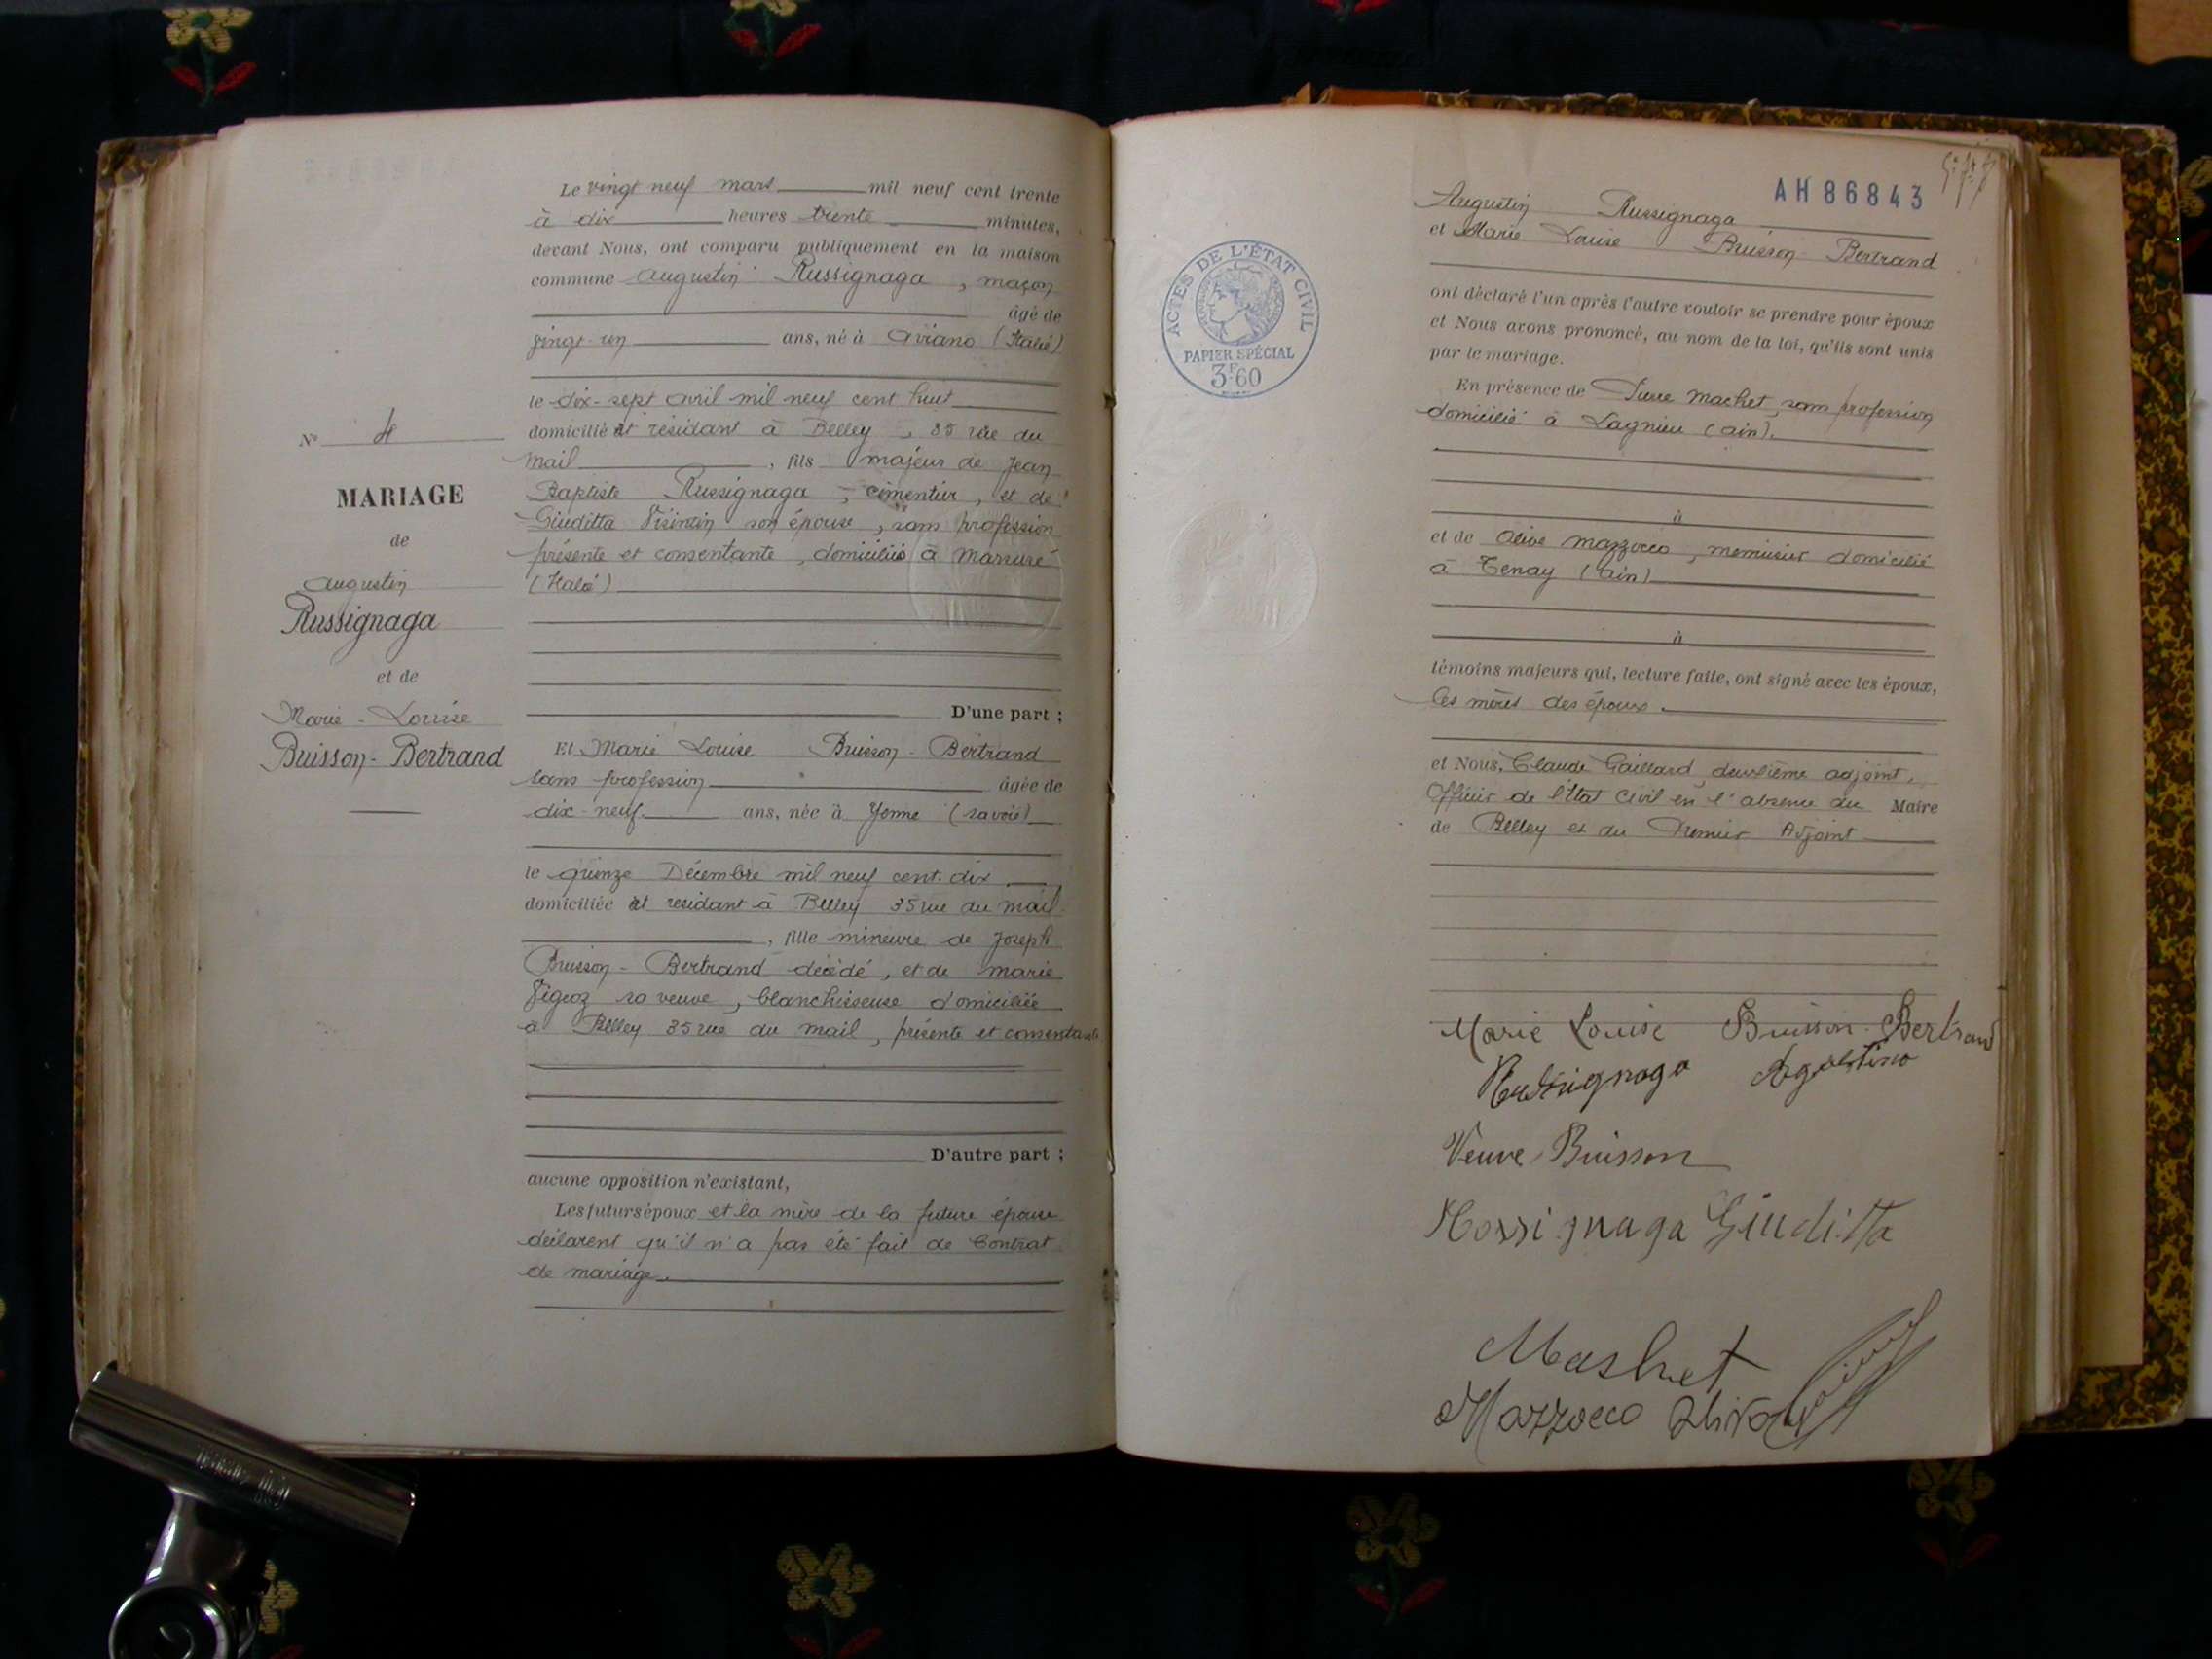 Le vingt neuf mars mil neuf cent trente
à dix heures trente minutes,
devant Nous, ont comparu publiquement en la maison
commune Augustin Russignaga, maçon
âgé de
vingt-un ans, né à Aviano (Italie)
le dix-sept avril mil neuf cent huit
domicilié et résidant à Belley, 35 rue du
Mail, fils majeur de Jean
Baptiste Russignaga, cimentier, et de
Giuditta Visintin son épouse, sans profession
présente et consentante, domiciliés à
(Italie)
D'une part ;
Et Marie Louise Buisson-Bertrand
sans profession âgée de
dix-neuf ans, née à Yenne (Savoie)
le quinze Décembre mil neuf cent dix
domiciliée et résidant à Belley 35 rue du Mail
, fille mineure de Joseph
Buisson-Bertrand décédé, et de Marie
Vigeoz sa veuve, blanchisseuse domiciliée
à Belley 35 rue du Mail, présente et consentante
D'autre part ;
aucune opposition n'existant,
Les futurs époux et la mère de la future épouse
déclarent qu'il n'a pas été fait de Contrat
de mariage.
N° 4
MARIAGE
de
Augustin
Russignaga
et de
Marie-Louise
Buisson-Bertrand
AH 86843
ACTES DE L'ÉTAT CIVIL
PAPIER SPÉCIAL
3F60
Augustin Russignaga
et Marie Louise Buisson-Bertrand
ont déclaré l'un après l'autre vouloir se prendre pour époux
et Nous avons prononcé, au nom de la loi, qu'ils sont unis
par le mariage.
En présence de Pierre Machet, sans profession
domicilié à Lagnieu (Ain).
à
et de Olivo Mazzocco, menuisier domicilié
à Tenay (Ain)
à
témoins majeurs qui, lecture faite, ont signé avec les époux,
les mères des époux.
et Nous, Claude Gaillard, deuxième adjoint,
Officier de l'Etat Civil en l'absence du Maire
de Belley et du Premier Adjoint
Marie Louise Buisson-Bertrand
Russignaga Agostino
Veuve Buisson
Rossignaga Giuditta
Mashet
Mazzocco Olivo